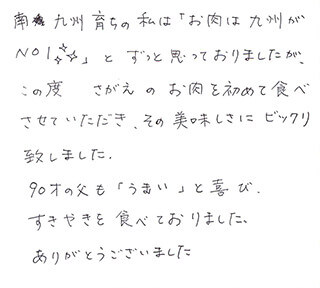 南九州育ちの私は「お肉は九州が
NO1✨」と ずっと思っておりましたが、
この度 さがえのお肉を初めて食べ
させていただき、その美味しさに ビックリ
致しました。
90才の父も「うまい」と喜び、
すきやきを食べておりました。
ありがとうございました